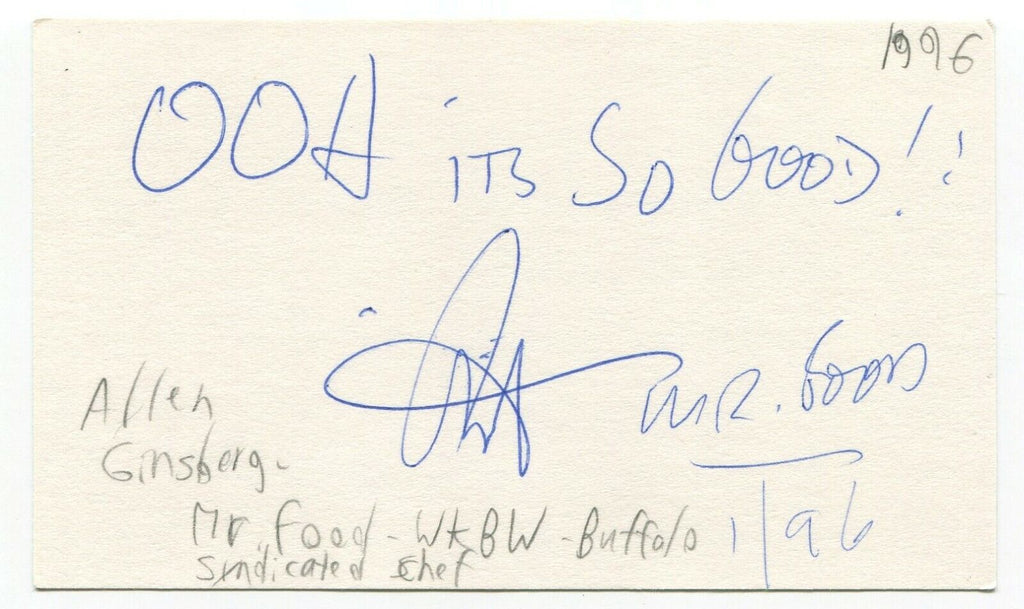 1996
OOH ITS SO GOOD!!
MR. FOOD
Allen
Ginsberg-
Mr. Food - WKBW - Buffalo
1/96
Syndicated Chef